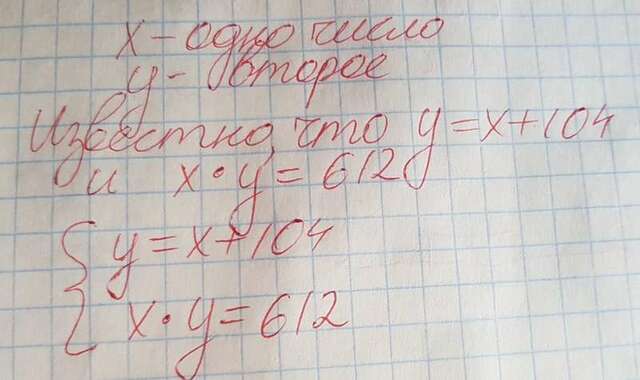 x - одно число
y - второе
Известно, что y = x + 104
и x · y = 612
{ y = x + 104
x · y = 612